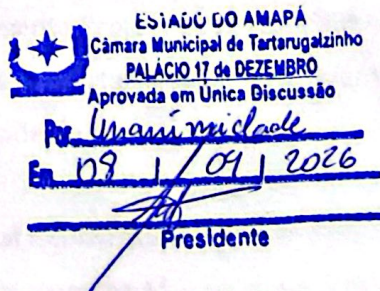 ESTADO DO AMAPÁ
Câmara Municipal de Tartarugalzinho
PALÁCIO 17 de DEZEMBRO
Aprovada em Única Discussão
Por Unanimidade
Em 08 / 09 / 2026
Presidente